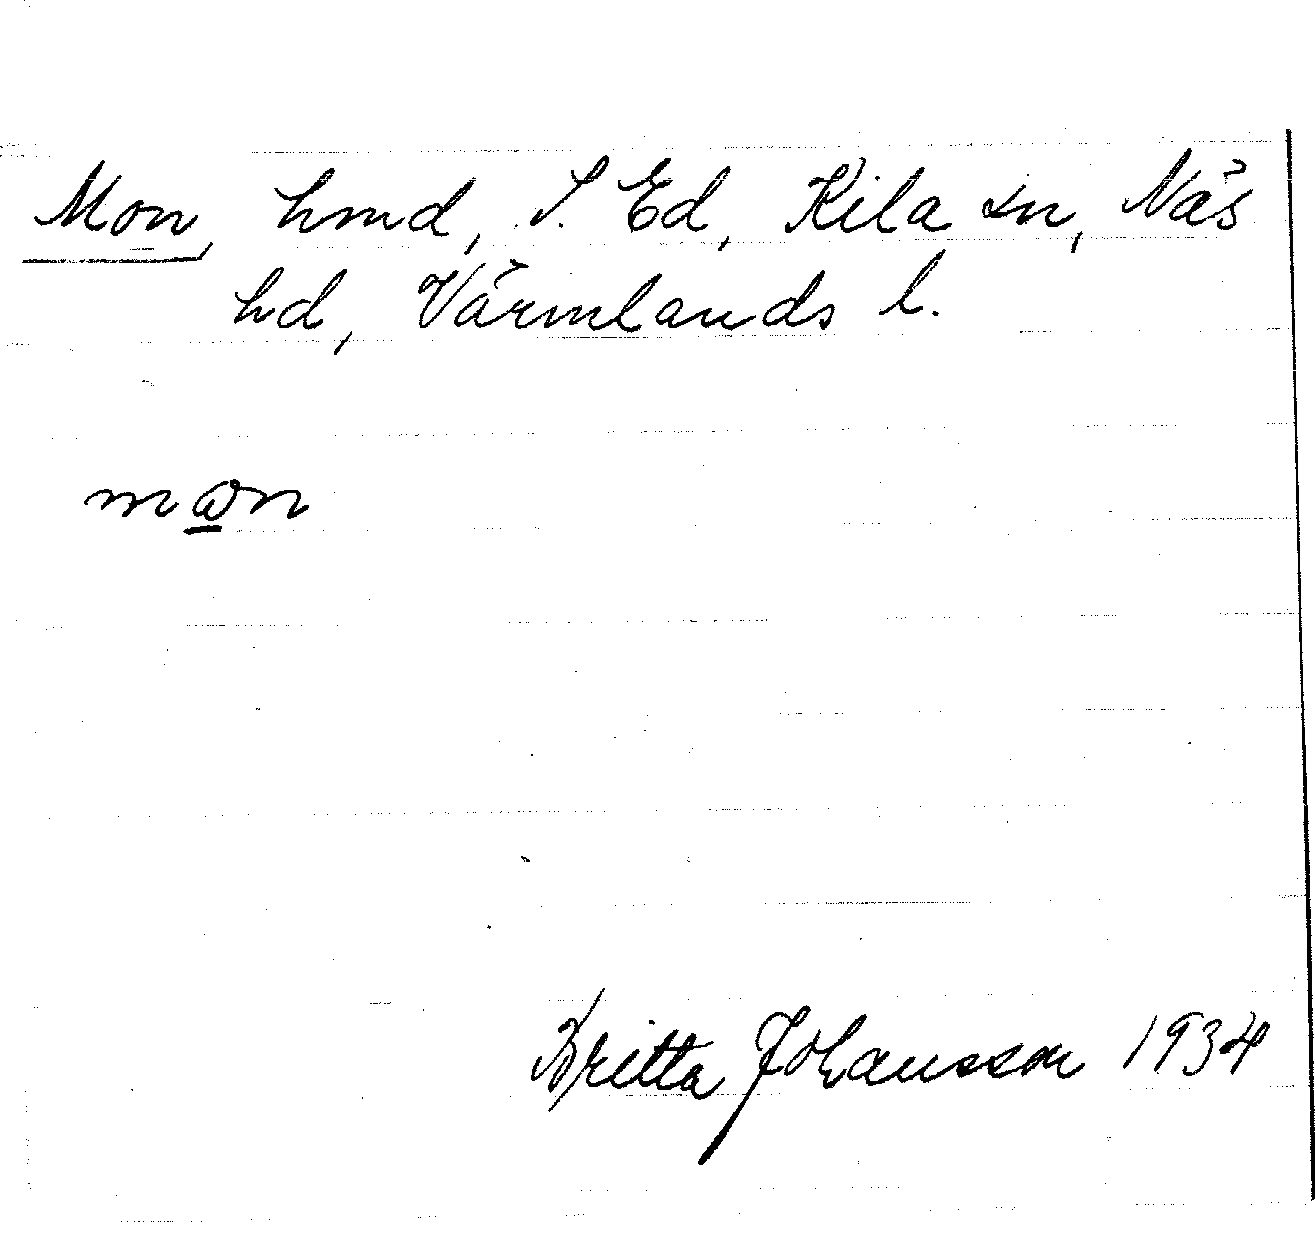 Mon, hmd, S. Ed, Kila sn, Näs
hd, Värmlands l.
Britta Johansson 1934